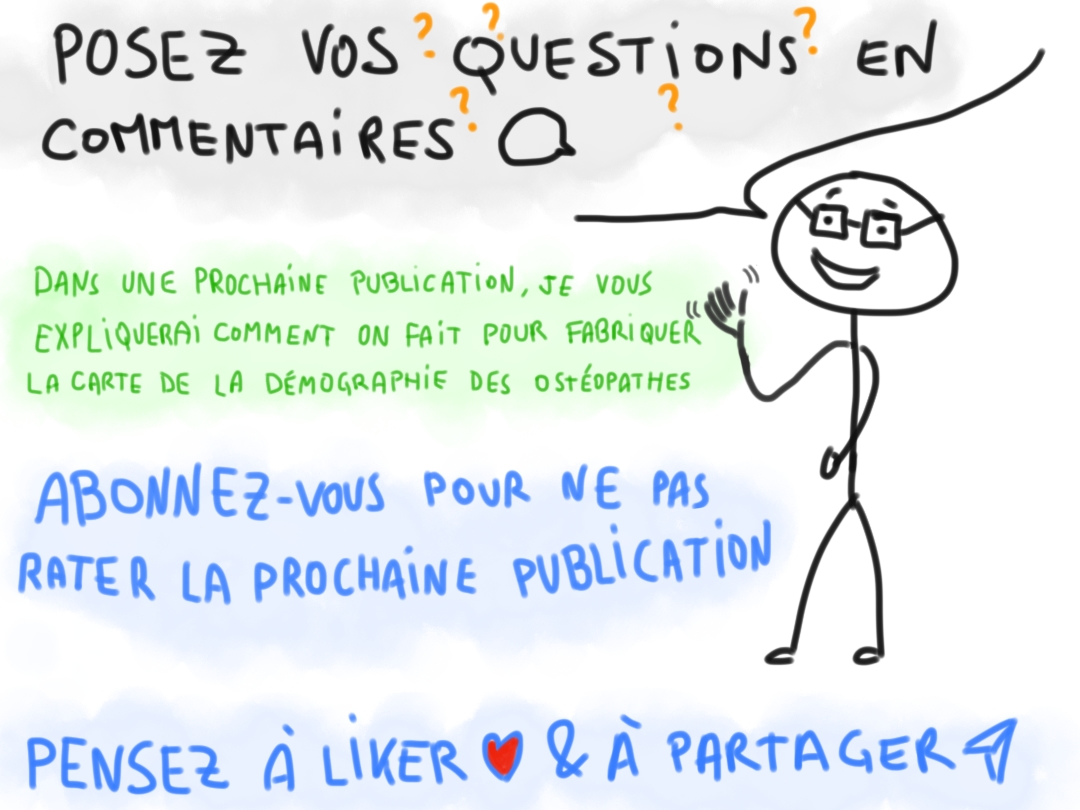 POSEZ VOS ? ? QUESTIONS ? EN
COMMENTAIRES ? ?
DANS UNE PROCHAINE PUBLICATION, JE VOUS
EXPLIQUERAI COMMENT ON FAIT POUR FABRIQUER
LA CARTE DE LA DÉMOGRAPHIE DES OSTÉOPATHES
ABONNEZ-VOUS POUR NE PAS
RATER LA PROCHAINE PUBLICATION
PENSEZ À LIKER & À PARTAGER